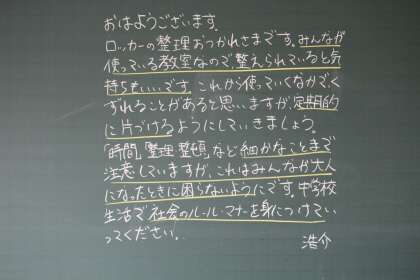 おはようございます。
ロッカーの整理おつかれさまです。みんなが
使っている教室なので、整えられていると気
持ちもいいです。これから使っていくなかで、く
ずれることがあると思いますが、定期的
に片づけるようにしていきましょう。
「時間」「整理整頓」など細かなことまで
注意していますが、これはみんなが大人
になったときに困らないようにです。中学校
生活で社会のルール・マナーを身につけてい
ってください。
浩介